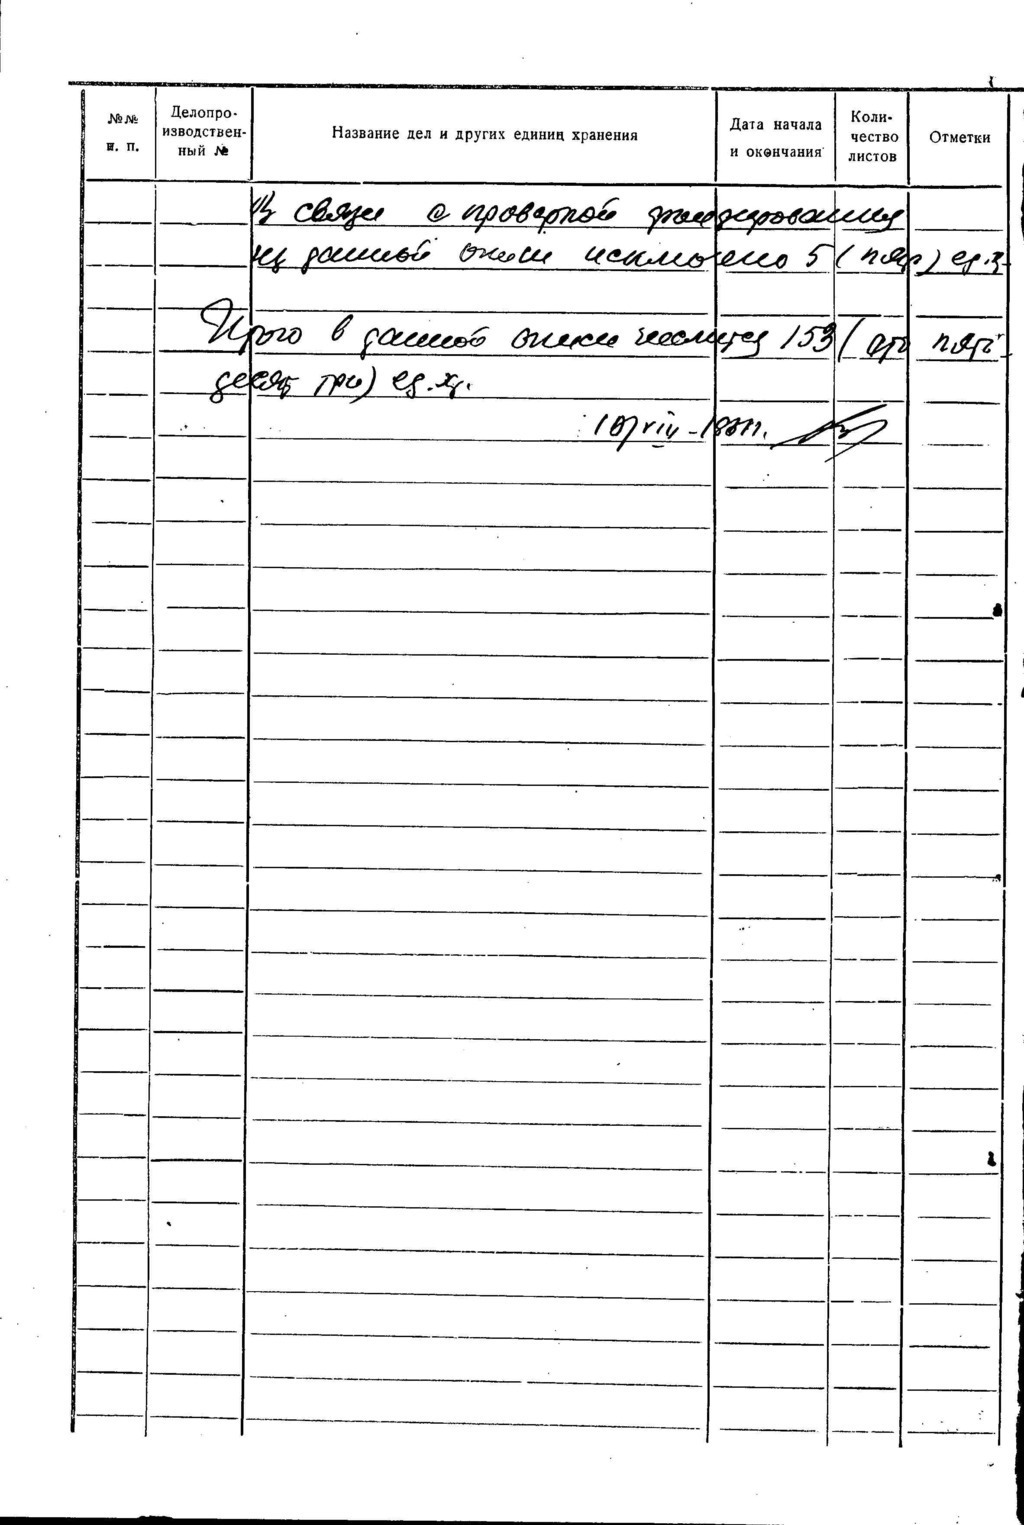 №№ п. п.
Делопро-
изводствен-
ный №
Название дел и других единиц хранения
Дата начала
и окончания
Коли-
чество
листов
Отметки
В связи с проверкой фондирования
из данной описи исключено 5 (пять) ед.х.
Итого в данной описи числится 153 (сто пять-
десят три) ед.хр.